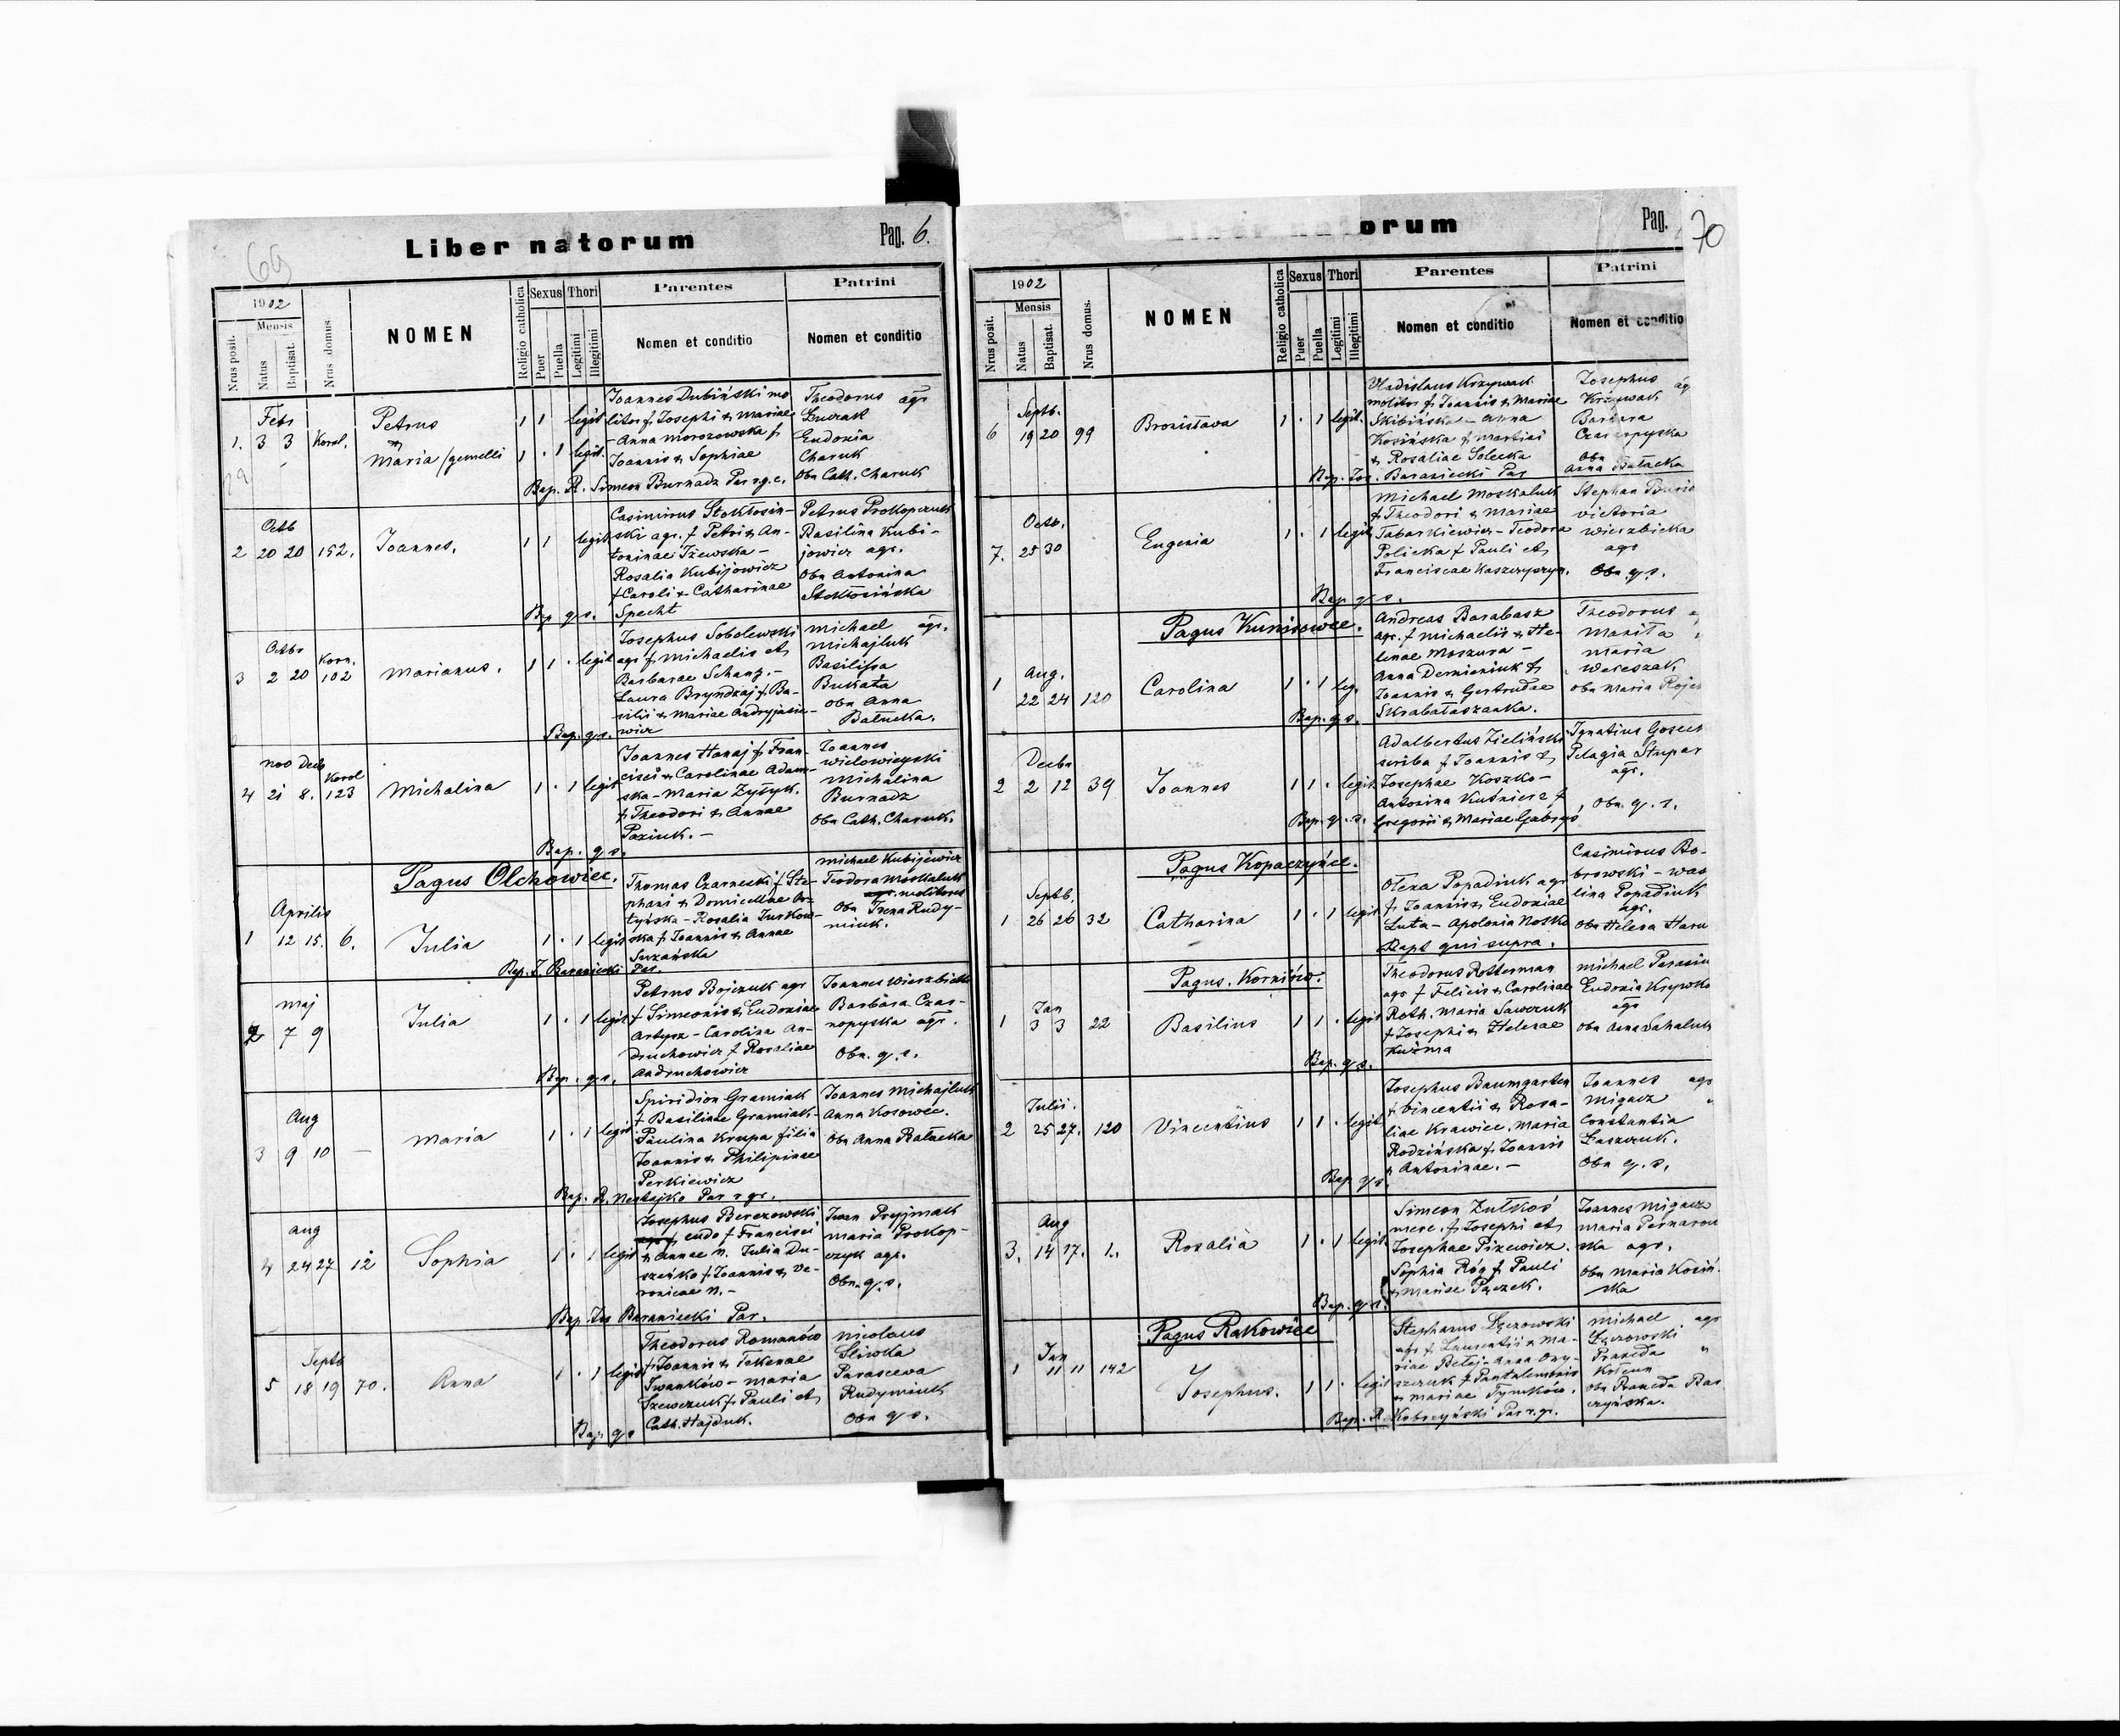 69
Liber natorum
Pag. 6.
1902
Mensis
Nrus posit.
Natus
Baptisat.
Nrus domus
NOMEN
Religio catholica
Sexus
Puer
Puella
Thori
Legitimi
Illegitimi
Parentes
Nomen et conditio
Patrini
Nomen et conditio
Febr
1. 3 3 Korol.
Petrus
&
Maria / gemelli
1 1 legit
1 . 1 legit.
Joannes Dubiński mo
litor f. Josephi & Mariae
- Anna Morozowska f
Joannis & Sophiae
Bap. R. Simeon Burnadz Par r.g.c.
Theodorus agr
Eudoxia
Charuk
Obn Cath. Charuk
Octb
2 20 20 152.
Joannes.
1 1 legit
Casimirus Stokłosiń-
ski agr. f Petri & An-
toninae
Rosalia Kubijowicz
f Caroli & Catharinae
Specht
Bap q.s.
Petrus Prokopczuk
Basilina Kubi-
jowicz agr.
Obn Antonina
Stokłosińska
Octbr
3 2 20 Korn. 102
Marianus.
1 1 . legit
Josephus Sobolewski
agr f Michaelis et
Barbarae Schanz -
Laura Bryndzaj f. Ba-
silii & Mariae Andryjasie-
wicz
Bap. q.s.
Michael agr.
Michajluk
Basilissa
Bukata
Obn Anna
Bałucka.
Nov Decb
4 21 8. Korol 123
Michalina
1 . 1 legit
Joannes Hanaj f. Fran-
cisci & Carolinae Adam-
ska - Maria Zyszyk.
f Theodori & Annae
Paziuk. -
Bap. q.s.
Joannes
Wielowieyski
Michalina
Burnadz
Obn Cath. Charuk.
Pagus Olchowiec.
Aprilis
1 12 15. 6.
Julia
1 . 1 legit
Thomas Czarnecki f Ste-
phani & Domicellae Or-
tyńska - Rosalia Jurkow-
ska f Joannis & Annae
Suzańska
Bap. J. Baraniecki Par.
Michael Kubijowicz
Teodora Moskaluk
agr. molitores
Obn Irena Rudy-
miuk.
Maj
2 7 9
Julia
1 . 1 legit
Petrus Bojczuk agr
f Simeonis & Eudoxiae
Artysz - Carolina An-
druchowicz f Rosaliae
Andruchowicz
Bap. q.s.
Joannes Wierzbicki
Barbara Czar-
nopyska agr.
Obn. q.s.
Aug
3 9 10 -
Maria
1 . 1 legit
Spiridion Gramiak
f Basilinae Gramiak-
Paulina Krupa filia
Joannis & Philipinae
Perkiewicz
Bap. R. Nestajko Par r gr.
Joannes Michajluk
Anna Kosowec.
Obn Anna Bałacka
Aug
4 24 27 12
Sophia
1 . 1 legit
Josephus Berezowski
cudo f Francisci
& Annae n. Julia Du-
szeńko f Joannis & Ve-
ronicae n. -
Bap. Jos Baraniecki Par.
Iwan Pryjmak
Maria Prokop-
czyk agr.
Obn. q.s.
Septb
5 18 19 70.
Anna
1 . 1 legit
Theodorus Romanów
f Joannis & Teklenae
Iwanków - Maria
Szewczuk f. Pauli et
Cath. Hajduk.
Bap. q s
Nicolaus
Sliwka
Parasceva
Rudymiuk
Obn q.s.
Liber natorum
Pag.
70
1902
Mensis
Nrus posit.
Natus
Baptisat.
Nrus domus.
NOMEN
Religio catholica
Sexus
Puer
Puella
Thori
Legitimi
Illegitimi
Parentes
Nomen et conditio
Patrini
Nomen et conditio
Septb.
6 19 20 99
Bronisława
1 . 1 legit.
Vladislaus Krzywak
molitor f. Joannis & Mariae
Skibińska - Anna
Kosińska f Martini
& Rosaliae Solecka
Bap. Jos. Baraniecki Par
Josephus
Krzywak
Barbara
Czarnopyska
Obn
Anna Bałacka
Octb.
7. 25 30
Eugenia
1 . 1 legit
Michael Moskaluk
f Theodori & Mariae
Tabarkiewicz - Teodora
Policka f Pauli et
Franciscae Kaszczyszyn.
Bap q.s.
Stephan
Victoria
Wierzbicka
agr
Obn q.s.
Pagus Kunisowce.
Aug.
1 22 24 120
Carolina
1 . 1 leg.
Andreas Barabasz
agr. f Michaelis & He-
lenae Moszura -
Anna Demieniuk f
Joannis & Gertrudae
Skrabałaszanka.
Bap. q.s.
Theodorus
Manita
Maria
Wereszak
Obn Maria
Decbr
2 2 12 39
Joannes
1 1 . legit
Adalbertus Zieliński
scriba f Joannis &
Josephae Koszko-
Antonina Kuśnierz f
Gregorii & Mariae Gabrys
Bap. q.s.
Ignatius
Pelagia Stupar
agr.
Obn. q.s.
Pagus Kopaczyńce.
Septb.
1 26 26 32
Catharina
1 . 1 legit
Ołexa Popadiuk agr
f Joannis & Eudoxiae
Luta - Apolonia Nosko
Bapt qui supra.
Casimirus Bo-
browski - Was
lina Popadiuk
agr.
Obn Helena
Pagus. Korniów.
Jan
1 3 3 22
Basilius
1 1 . legit
Theodorus Rotterman
agr f Felicis & Carolinae
Roth. Maria Sawczuk
f Josephi & Helenae
Kuźma
Bap. q.s.
Michael
Eudoxia
agr
Obn Anna
Julii.
2 25 27. 120
Vincentius
1 1 . legit
Josephus Baumgarten
f Vincentii & Rosa-
liae Krawiec. Maria
Rodzińska f. Joannis
& Antoninae. -
Bap q s
Joannes agr
Migacz
Constantia
Łaszczuk.
Obn q.s.
Aug
3. 14 17. 1.
Rosalia
1 . 1 legit
Simeon Zutkoś
merc. f Josephi et
Josephae Pizewicz.
Sophia Róg f Pauli
& Mariae Pączek.
Bap. q.s.
Joannes Migacz
Maria
ska agr.
Obn Maria Kosiń
ska
Pagus Rakowiec
Jan
1 11 11 142
Josephus.
1 1 . legit
Stephanus Łęczowski
agr f Laurentii & Ma-
riae Bełej - Anna Ony-
szczuk f Pantalemonis
& Mariae Tymków.
Bap. R. Kobrzyński Par r.gr.
Michael agr
Łęczowski
Praxeda
Obn Praxeda